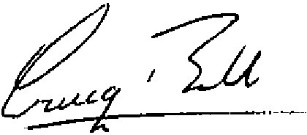 Craig Bell